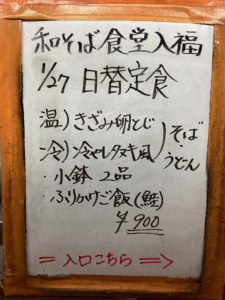 和そば食堂入福
1/27 日替定食
温)きざみ卵とじ
冷)冷やしタヌキ風
そば・うどん
・小鉢 2品
・ふりかけご飯(鮭)
¥900
=入口こちら=>